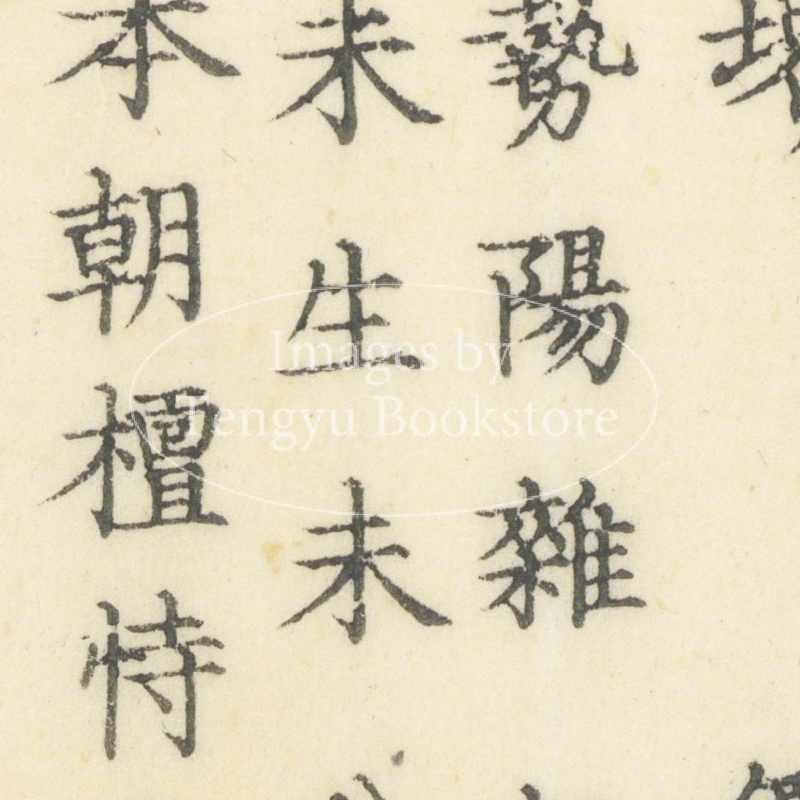 勢陽雜
未生未
本朝檀恃
Images by
Tengyu Bookstore